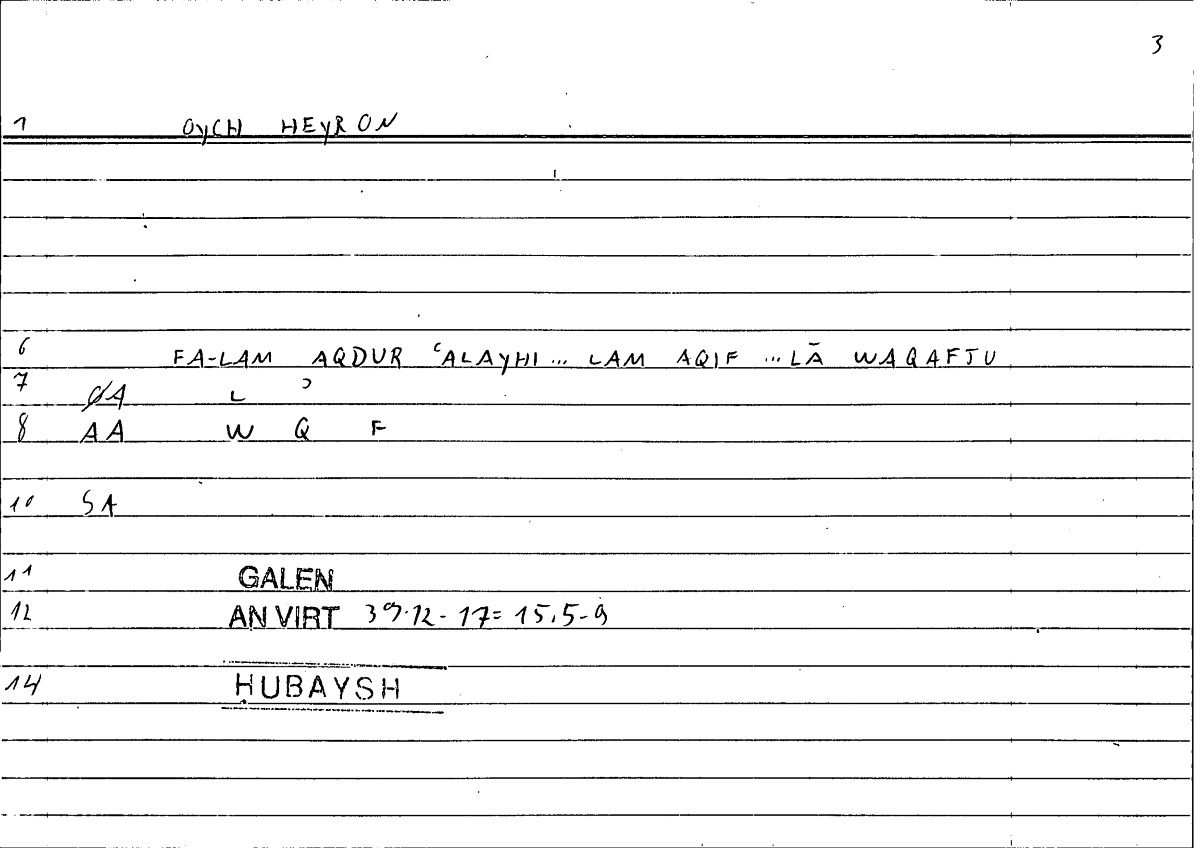 3
1 OYCH HEYRON
6 FA-LAM AQDUR ʿALAYHI ... LAM AQIF ... LĀ WAQAFTU
7 ØA L ʾ
8 AA W Q F
10 SA
11 GALEN
12 AN VIRT 39.12-17=15.5-9
14 ḤUBAYSH